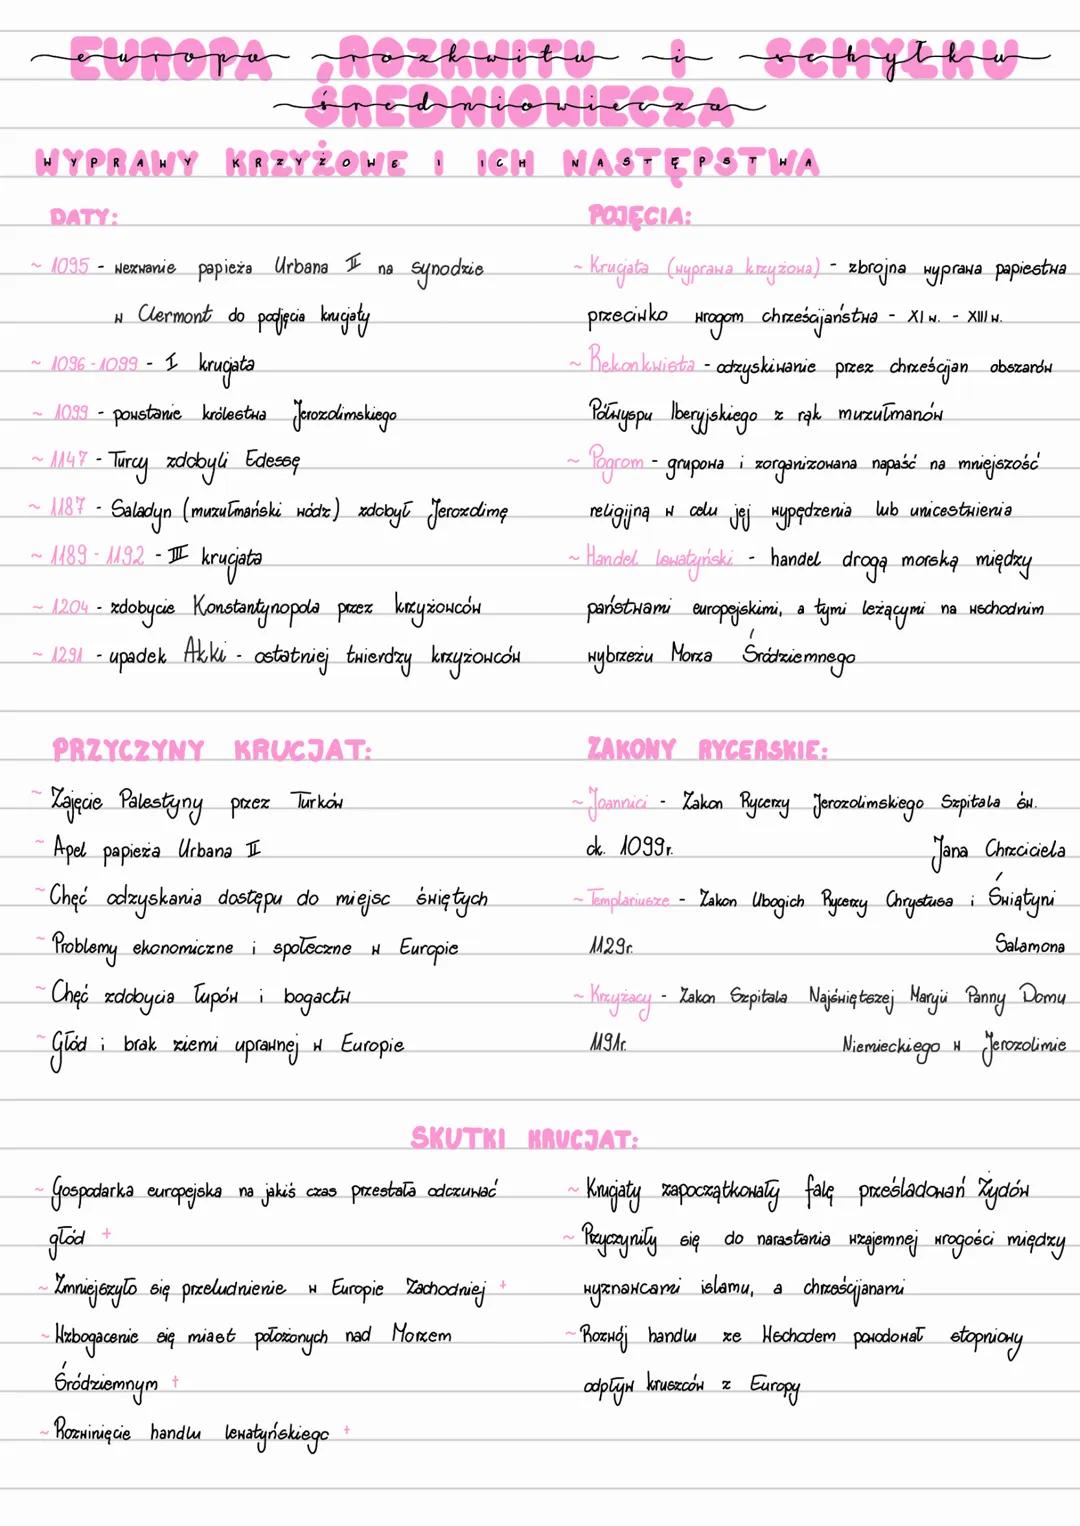 EUROPA ROZKWITU I SCHYŁKU
ŚREDNIOWIECZA
WYPRAWY KRZYŻOWE I ICH NASTĘPSTWA
DATY:
~ 1095 - wezwanie papieża Urbana II na synodzie
w Clermont do podjęcia krucjaty
~ 1096 - 1099 - I krucjata
~ 1099 - powstanie królestwa Jerozolimskiego
~ 1147 - Turcy zdobyli Edessę
~ 1187 - Saladyn (muzułmański wódz) zdobył Jerozolimę
~ 1189 - 1192 - III krucjata
~ 1204 - zdobycie Konstantynopola przez krzyżowców
~ 1291 - upadek Akki - ostatniej twierdzy krzyżowców
POJĘCIA:
~ Krucjata (wyprawa krzyżowa) - zbrojna wyprawa papiestwa
przeciwko wrogom chrześcijaństwa - XI w. - XIII w.
~ Rekonkwista - odzyskiwanie przez chrześcijan obszarów
Półwyspu Iberyjskiego z rąk muzułmanów
~ Pogrom - grupowa i zorganizowana napaść na mniejszość
religijną w celu jej wypędzenia lub unicestwienia
~ Handel lewatyński - handel drogą morską między
państwami europejskimi, a tymi leżącymi na wschodnim
wybrzeżu Morza Śródziemnego
PRZYCZYNY KRUCJAT:
~ Zajęcie Palestyny przez Turków
~ Apel papieża Urbana II
~ Chęć odzyskania dostępu do miejsc świętych
~ Problemy ekonomiczne i społeczne w Europie
~ Chęć zdobycia łupów i bogactw
~ Głód i brak ziemi uprawnej w Europie
ZAKONY RYCERSKIE:
~ Joannici - Zakon Rycerzy Jerozolimskiego Szpitala św.
ok. 1099r. Jana Chrzciciela
~ Templariusze - Zakon Ubogich Rycerzy Chrystusa i Świątyni
1129r. Salamona
~ Krzyżacy - Zakon Szpitala Najświętszej Maryii Panny Domu
1191r. Niemieckiego w Jerozolimie
SKUTKI KRUCJAT:
~ Gospodarka europejska na jakiś czas przestała odczuwać
głód +
~ Zmniejszyło się przeludnienie w Europie Zachodniej +
~ Wzbogacenie się miast położonych nad Morzem
Śródziemnym +
~ Rozwinięcie handlu lewatyńskiego +
~ Krucjaty zapoczątkowały falę prześladowań Żydów
~ Przyczyniły się do narastania wzajemnej wrogości między
wyznawcami islamu, a chrześcijanami
~ Rozwój handlu ze Wschodem powodował stopniowy
odpływ kruszców z Europy